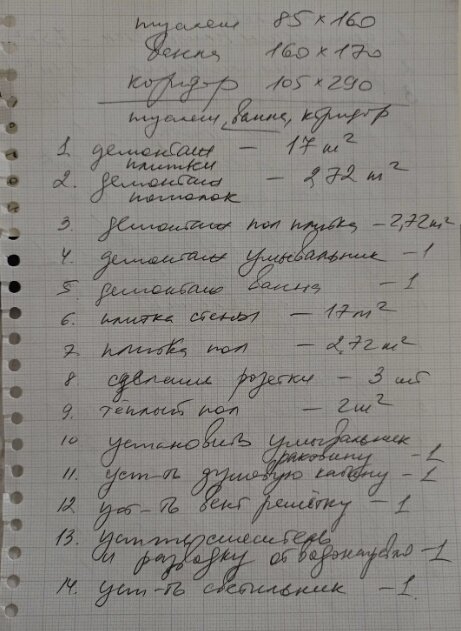 туалет 85×160
ванна 160×170
коридор 105×290
туалет, ванна, коридор
1 демонтаж — 17 m²
плитки
2. демонтаж — 2,72 m²
потолок
3. демонтаж пол плитка — 2,72 m²
4. демонтаж умывальник — 1
5. демонтаж ванна — 1
6. плитка стены — 17 m²
7. плитка пол — 2,72 m²
8 сделать розетки — 3 шт
9. тёплый пол — 2 m²
10 установить умывальник
раковину — 1
11. уст-ть душевую кабину — 1
12 уст-ть вент решётку — 1
13. уст-ть смеситель
и разводку от водонагрев — 1
14. уст-ть светильник — 1